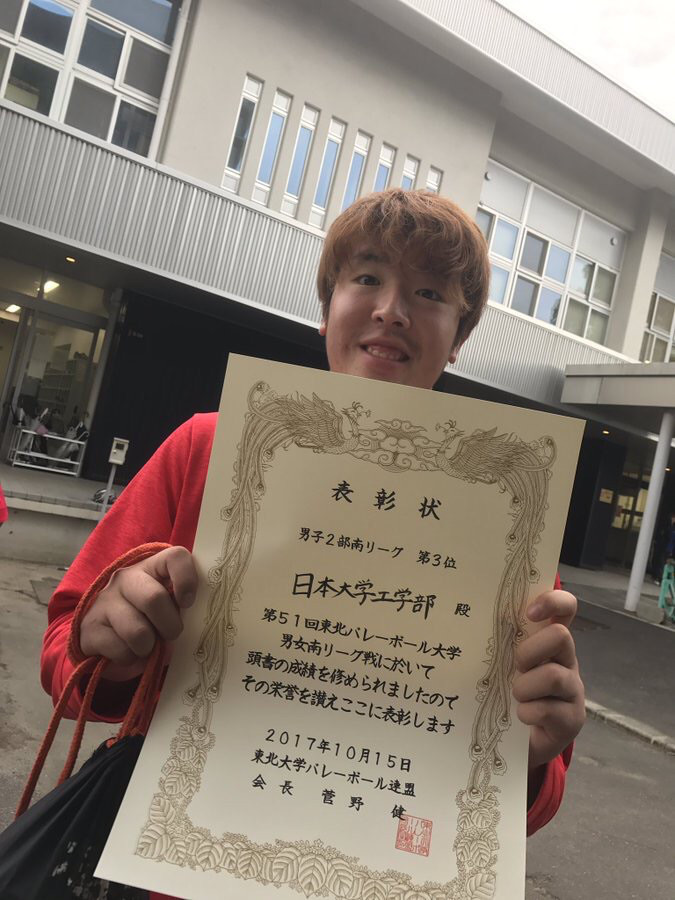 表彰状
男子2部南リーグ 第3位
日本大学工学部 殿
第51回東北バレーボール大学
男女南リーグ戦に於いて
頭書の成績を修められましたので
その栄誉を讃えここに表彰します
2017年10月15日
東北大学バレーボール連盟
会長 菅野 健